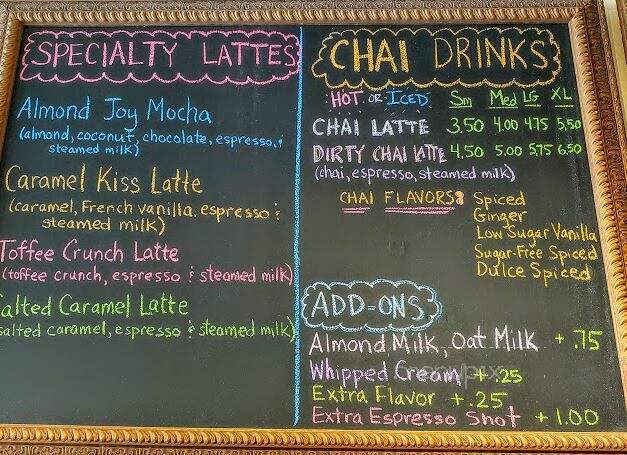 SPECIALTY LATTES
Almond Joy Mocha
(almond, coconut, chocolate, espresso, &
steamed milk)
Caramel Kiss Latte
(caramel, French vanilla, espresso &
steamed milk)
Toffee Crunch Latte
(toffee crunch, espresso & steamed milk)
alted Caramel Latte
salted caramel, espresso & steamed milk)
CHAI DRINKS
HOT OR ICED Sm Med LG XL
CHAI LATTE 3.50 4.00 4.75 5.50
DIRTY CHAI LATTE 4.50 5.00 5.75 6.50
(chai, espresso, steamed milk)
CHAI FLAVORS: Spiced
Ginger
Low Sugar Vanilla
Sugar-Free Spiced
Dulce Spiced
ADD-ONS
Almond Milk, Oat Milk + .75
Whipped Cream + .25
Extra Flavor + .25
Extra Espresso Shot + 1.00